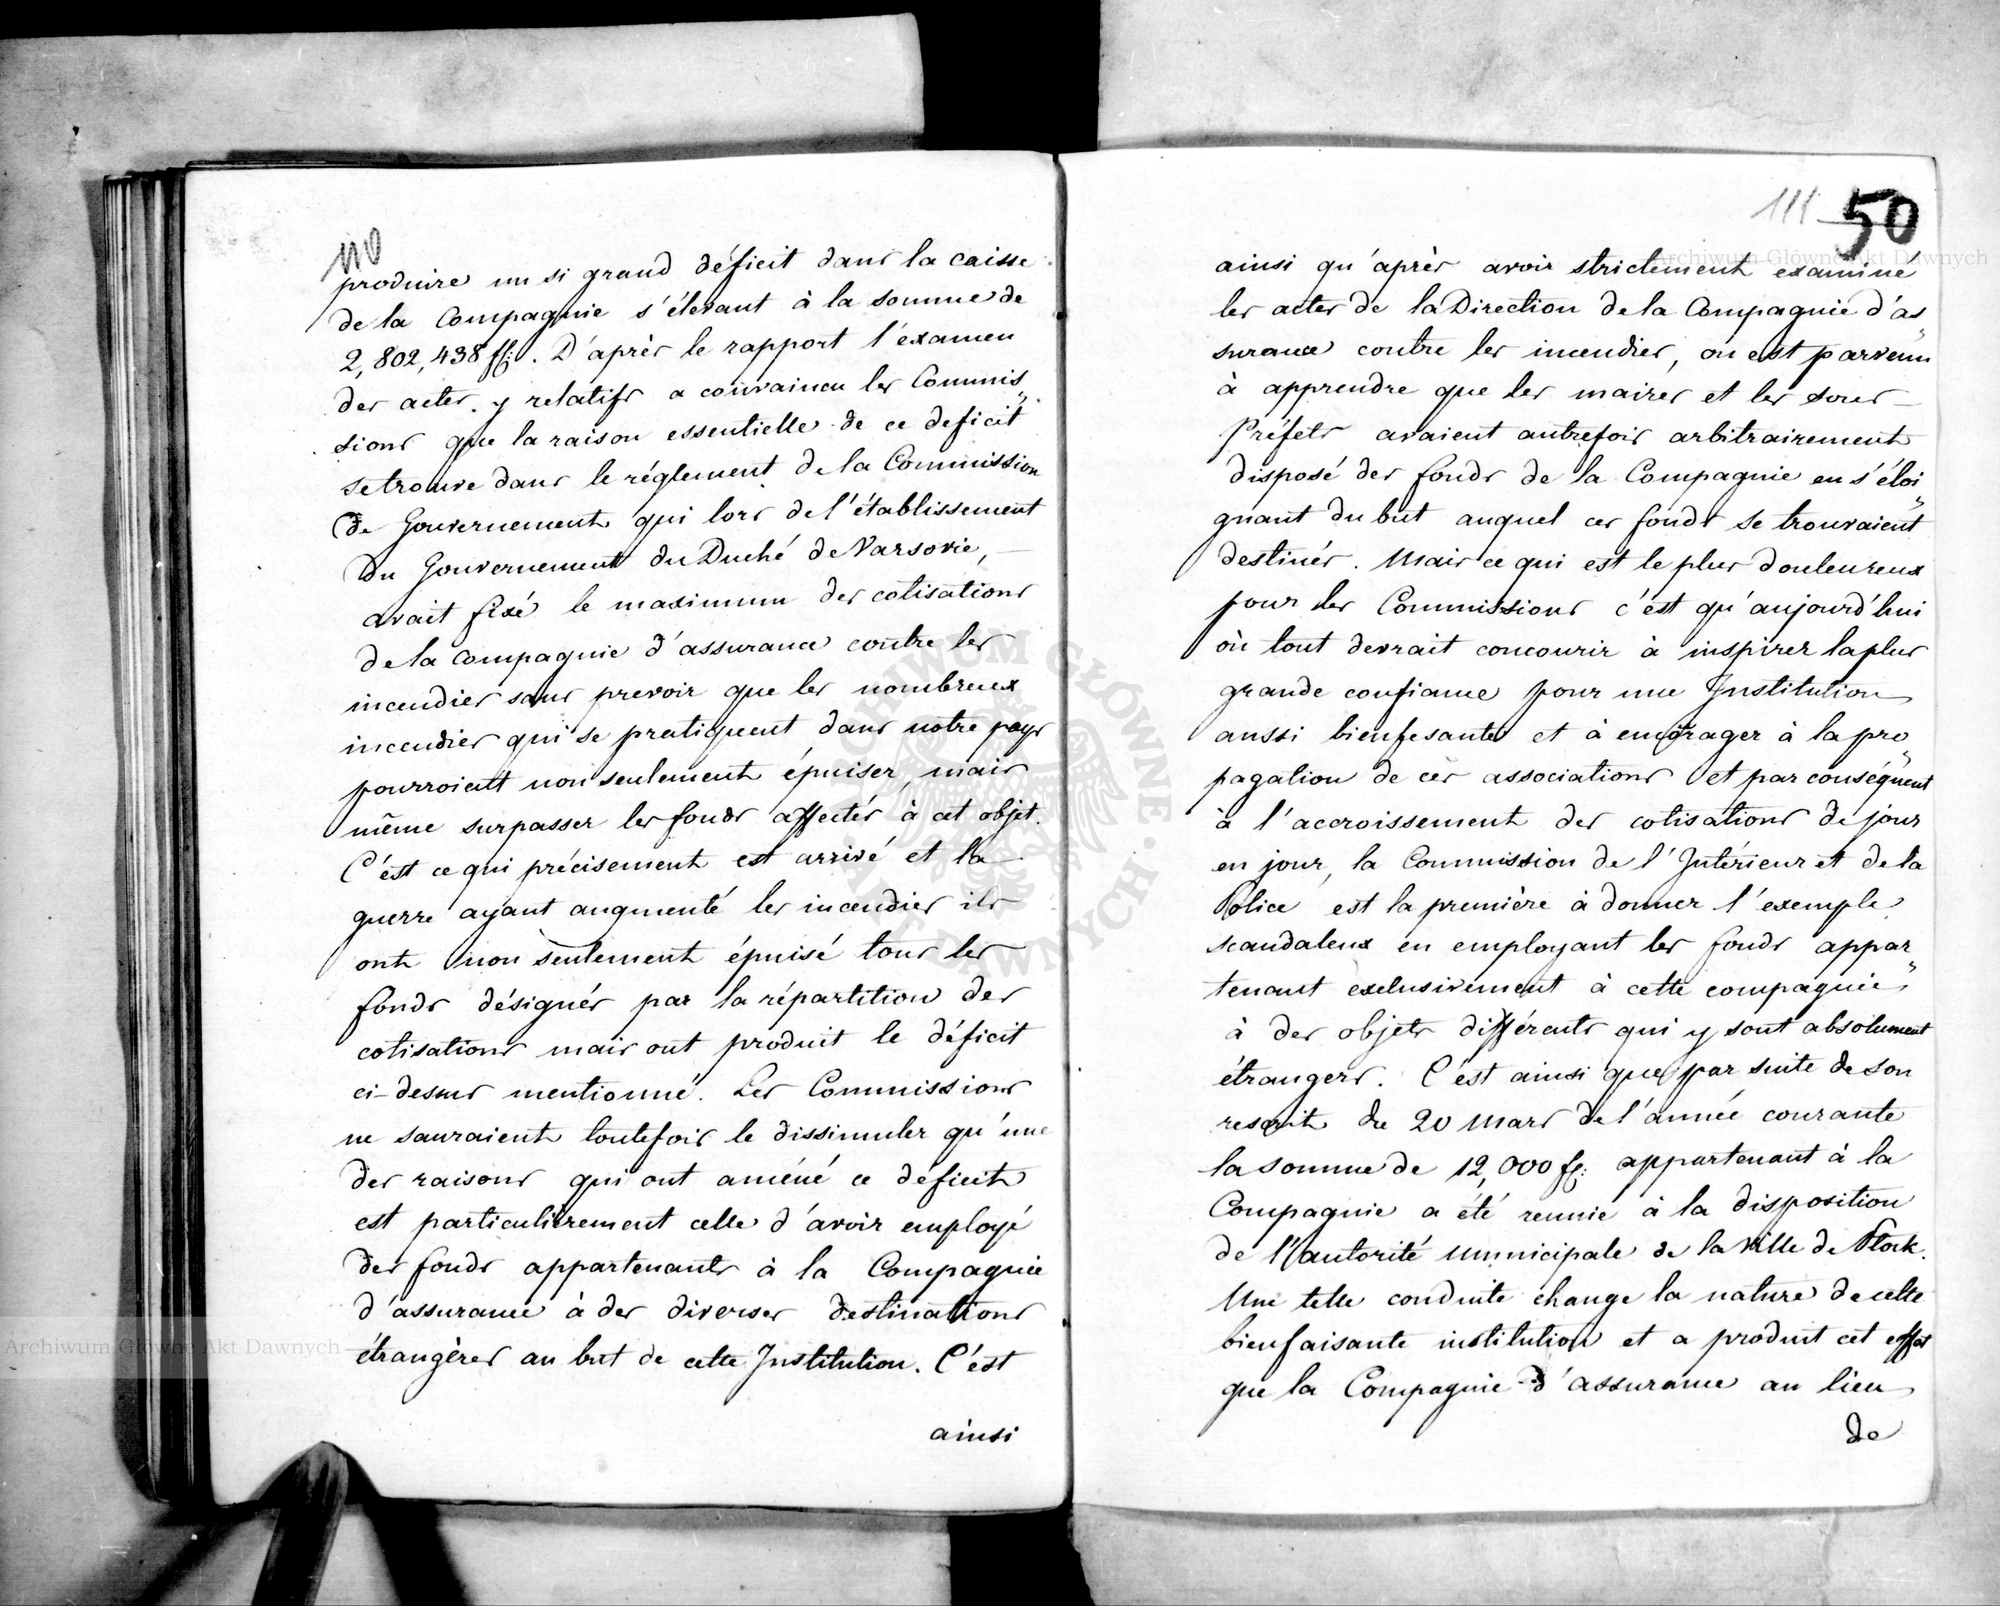 110
produire un si grand déficit dans la caisse
de la Compagnie s'élevant à la somme de
2,802,438 fl: . D'après le rapport l'éxamen
des actes y relatifs a convaincu les Commis„
sions que la raison essentielle de ce deficit
se trouve dans le réglement de la Commission
de Gouvernement qui lors de l'établissement
du Gouvernement du Duché de Varsovie,
avait fixé le maximum des cotisations
de la compagnie d'assurance contre les
incendies sans prevoir que les nombreux
incendies qui se pratiquent dans notre pays
pourroient non seulement épuiser, mais
même surpasser les fonds affectés à cet objet.
C'est ce qui précisement est arrivé et la
guerre ayant augmenté les incendies ils
ont non seulement épuisé tous les
fonds désignés par la répartition des
cotisations mais ont produit le déficit
ci-dessus mentionné. Les Commissions
ne sauraient toutefois le dissimuler qu'une
des raisons qui ont améné ce déficit
est particulièrement celle d'avoir employé
des fonds appartenants à la Compagnie
d'assurance à des diverses destinations
étrangères au but de cette Institution. C'est
ainsi
111
50
ainsi qu'après avoir strictement examine
les actes de la Direction de la Compagnie d'as„
surance contre les incendies, on est parvenu
à apprendre que les maires et les sous-
Préfets avaient autrefois arbitrairement
disposé des fonds de la Compagnie en s'éloi„
gnant du but auquel ces fonds se trouvaient
destinés. Mais ce qui est le plus douleureux
pour les Commissions c'est qu'aujourd'hui
où tout devrait concourir à inspirer la plus
grande confiance pour une Institution
aussi bienfesante et à encorager à la pro„
pagation de ces associations et par conséquent
à l'accroissement des cotisations de jour
en jour, la Commission de l'Intérieur et de la
Police est la première à donner l'exemple
scandaleux en employant les fonds appar„
tenant exclusivement à cette compagnie,
à des objets différents qui y sont absolument
étrangers. C'est ainsi que par suite de son
rescrit du 20 Mars de l'année courante
la somme de 12,000 fl: appartenant à la
Compagnie a été remise à la disposition
de l'autorité municipale de la ville de Plock.
Une telle conduite change la nature de cette
bienfaisante institution et a produit cet effet
que la Compagnie d'assurance au lieu
de
Archiwum Główne Akt Dawnych
Archiwum Główne Akt Dawnych
ARCHIWUM GŁÓWNE AKT DAWNYCH